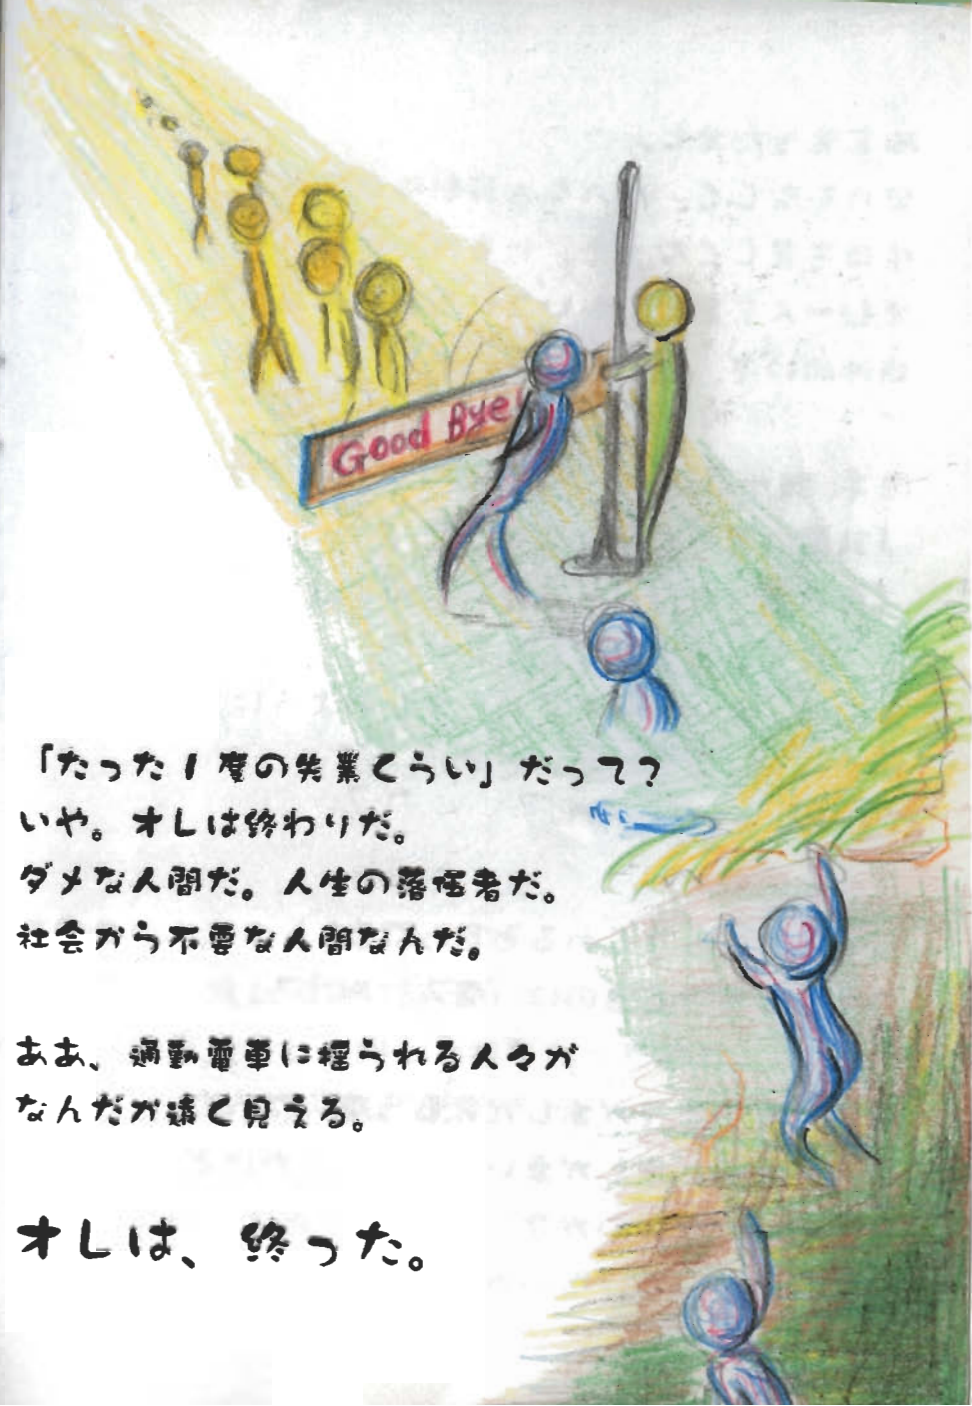 Good Bye!
「たった1度の失業くらい」だって？
いや。オレは終わりだ。
ダメな人間だ。人生の落伍者だ。
社会から不要な人間なんだ。
ああ、通勤電車に揺られる人々が
なんだか遠く見える。
オレは、終った。